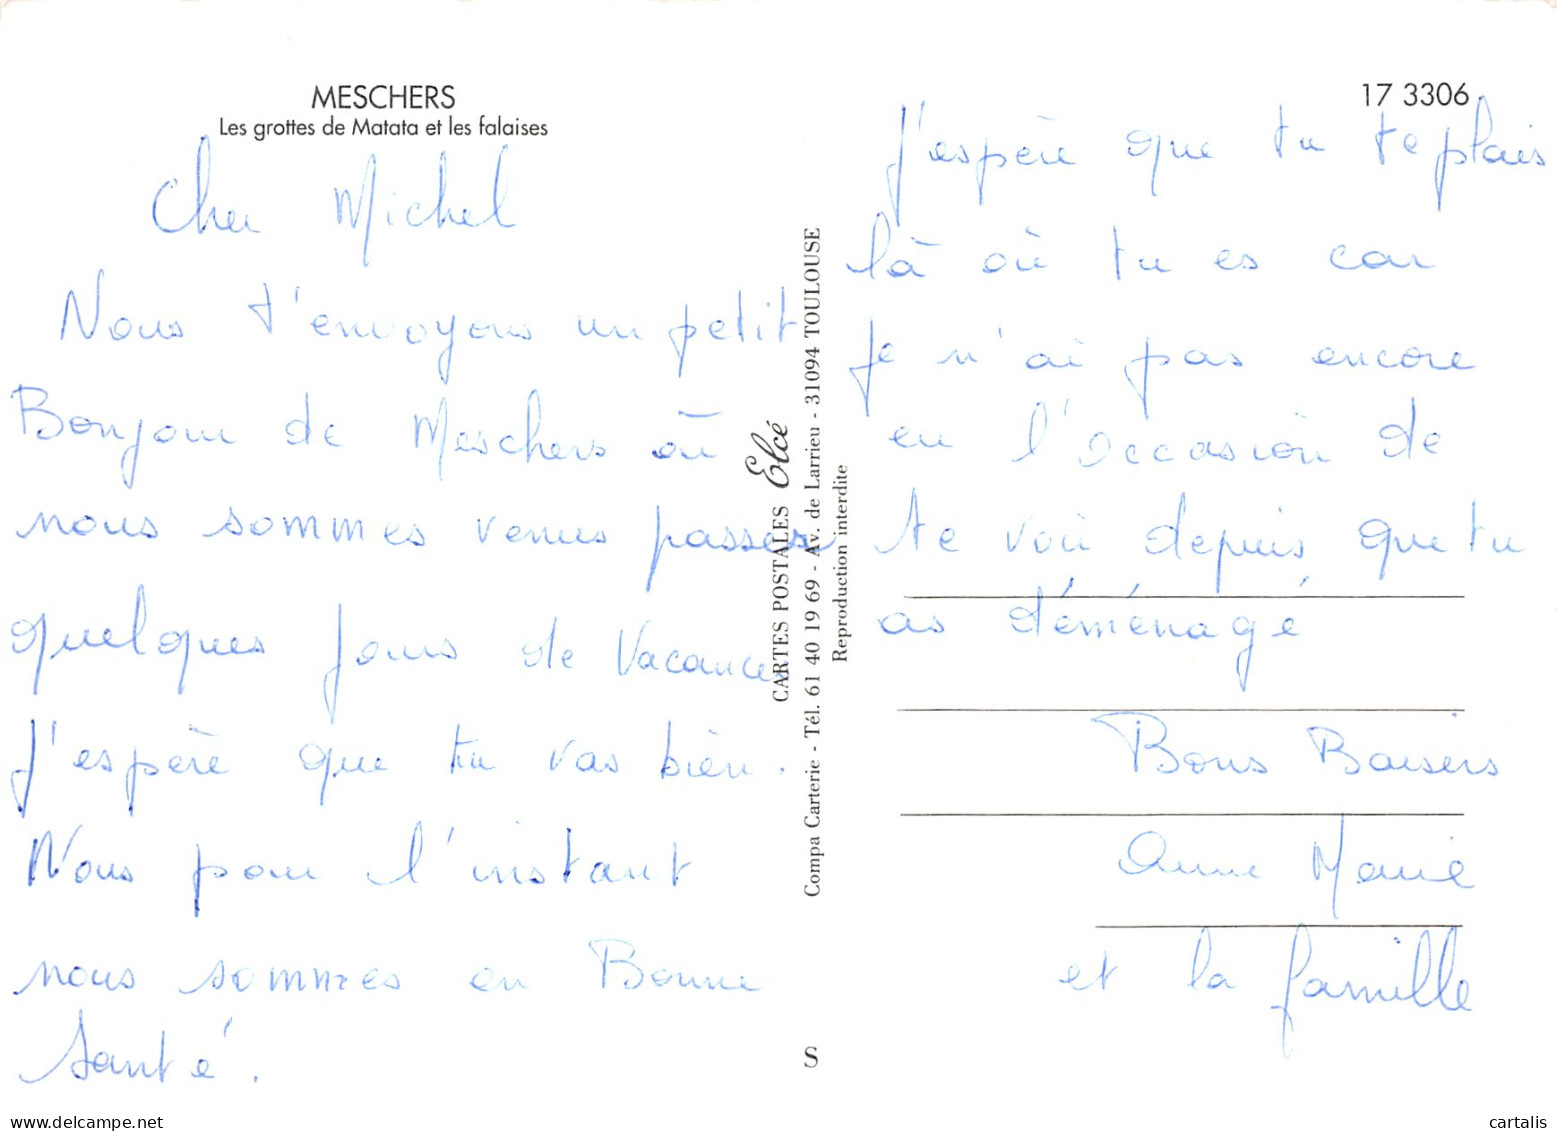 MESCHERS
Les grottes de Matata et les falaises
Cher Michel
Nous t'envoyons un petit
Bonjour de Meschers où
nous sommes venus passer
quelques jours de Vacances
J'espère que tu vas bien.
Nous pour l'instant
nous sommes en Bonne
Santé.
CARTES POSTALES Elcé
Compa Carterie - Tél. 61 40 19 69 - Av. de Larrieu - 31094 TOULOUSE
Reproduction interdite
S
17 3306
J'espère que tu te plais
là où tu es car
Je n'ai pas encore
eu l'occasion de
te voir depuis que tu
as déménagé
Bons Baisers
Anne Marie
et la famille
www.delcampe.net
cartalis